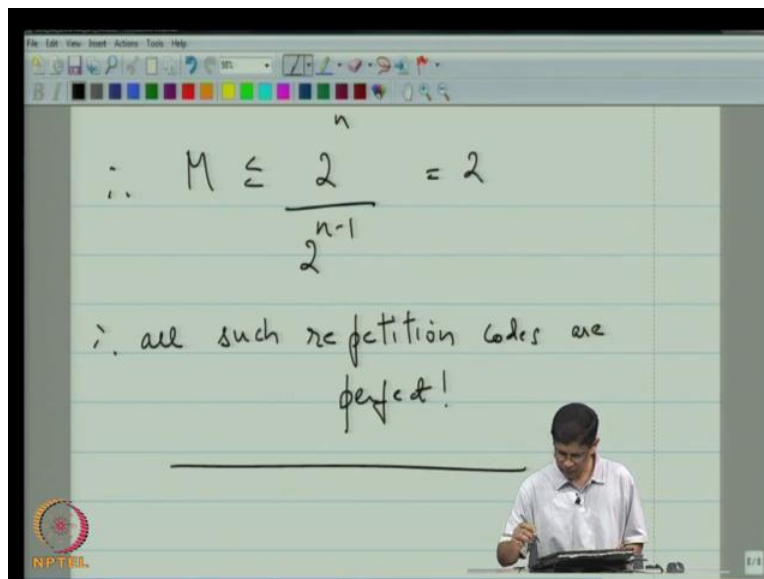 File Edit View Insert Actions Tools Help
B I
n
∴ M ≤ 2 = 2
n-1
2
∴ all such repetition codes are
perfect!
NPTEL
8/8